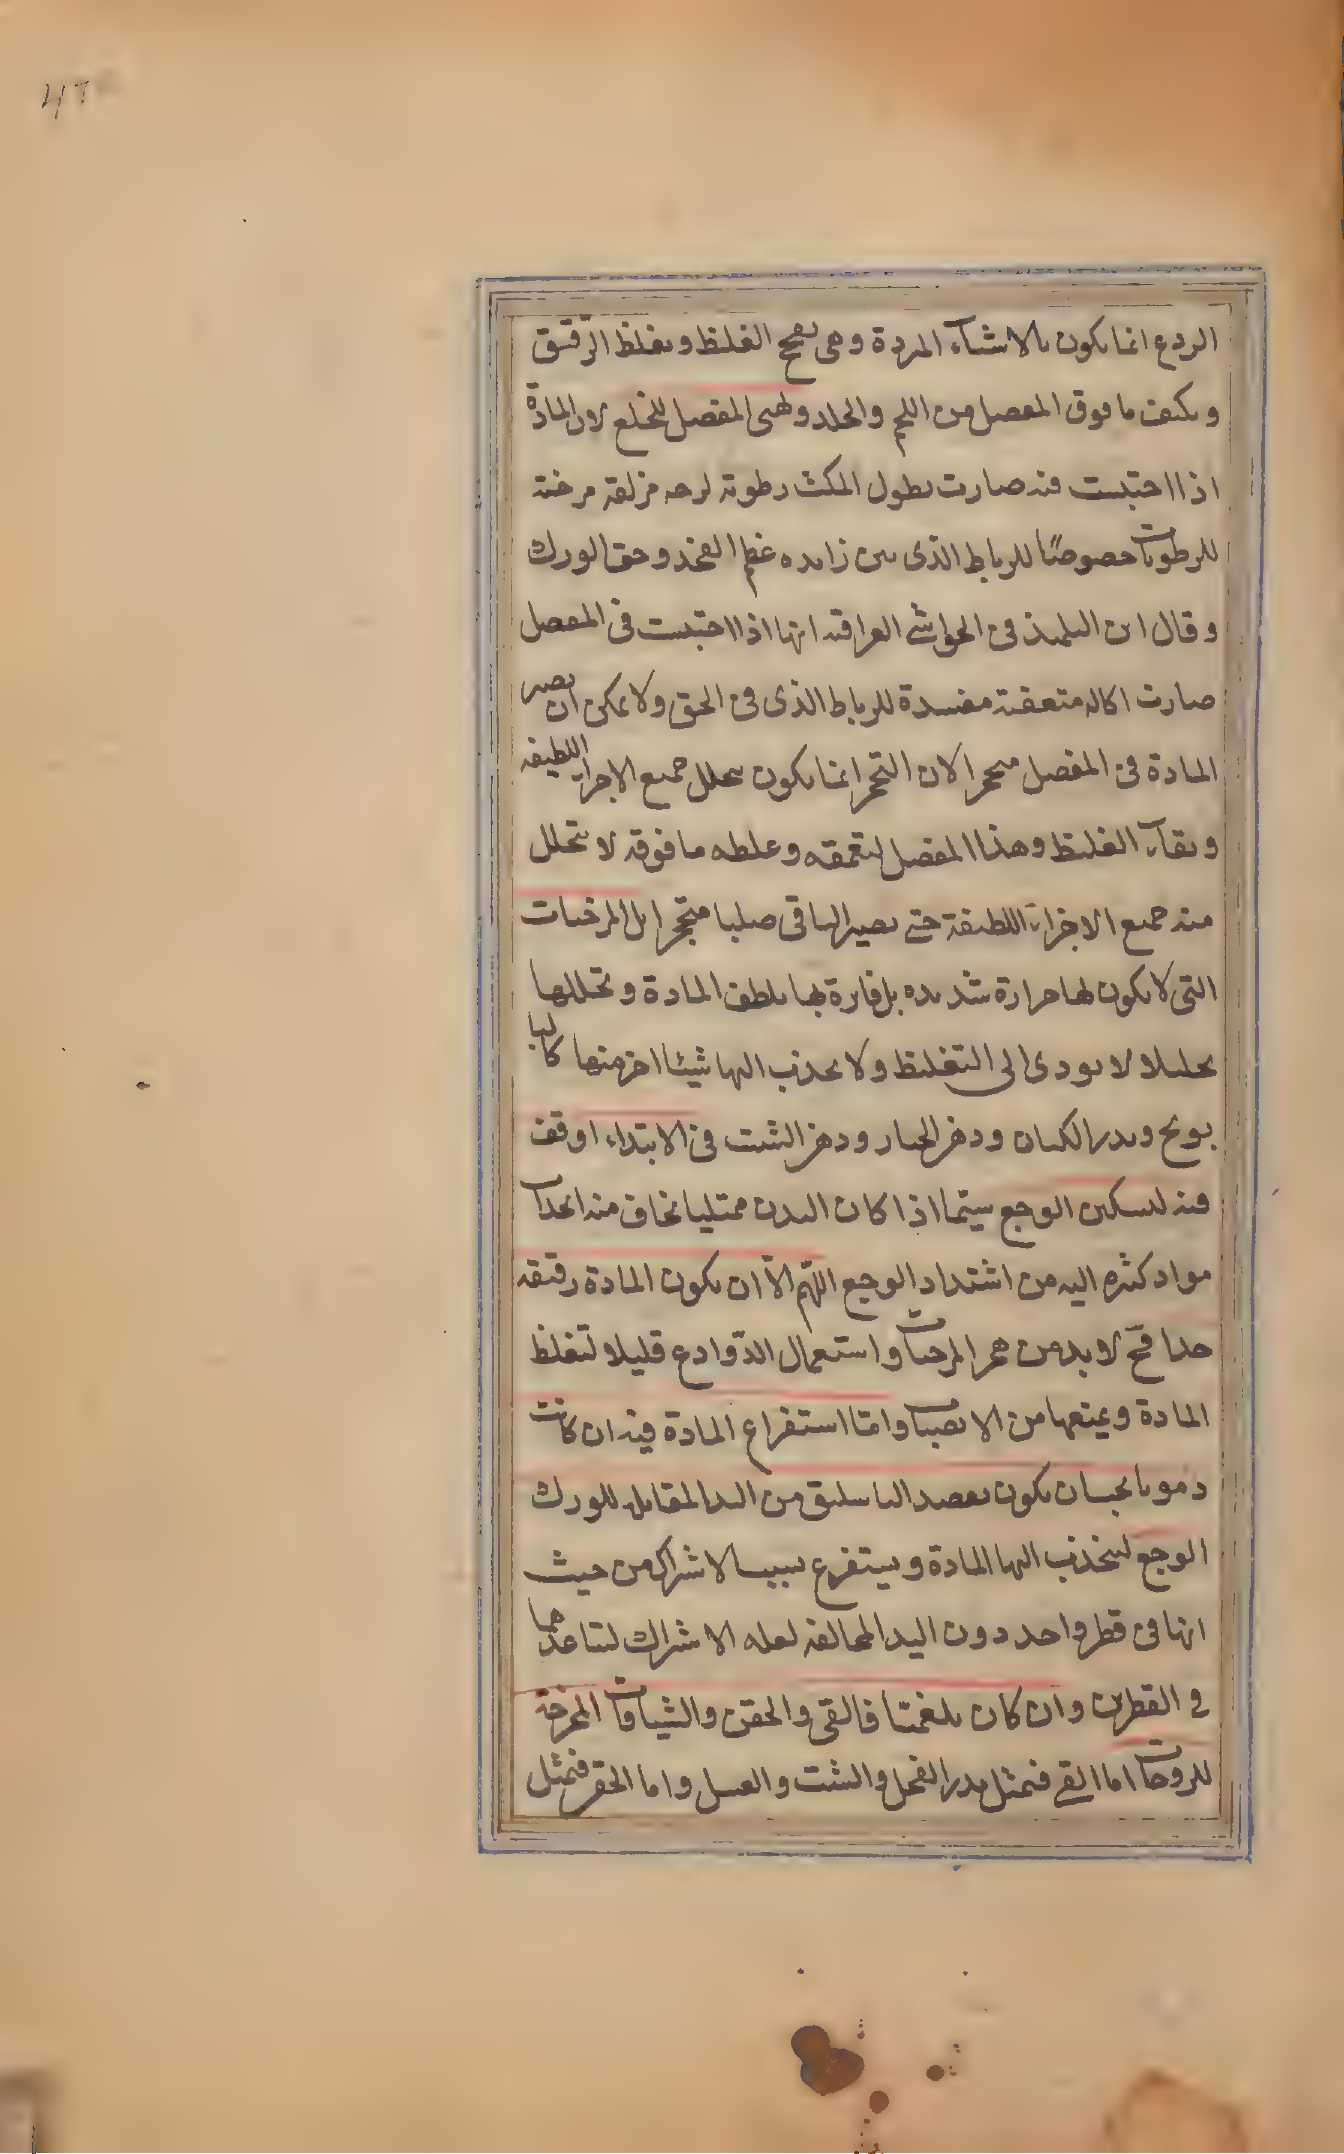 الردع انما يكون بالاشياء المبردة وهى تفجج الغليظ و تغلظ الرقيق
و يكثف ما فوق المفصل من اللحم والجلد و تهيى المفصل للخلع لان المادة
اذا احتبست فيه صارت بطول المكث رطوبة لزجه مزلقة مرخية
للرطوبات خصوصًا للرباط الذى بين زايده عظم الفخذ و حق الورك
و قال ابن التلميذ فى الحواشى العراقيه انها اذا احتبست فى المفصل
صارت اكاله متعفنة مفسدة للرباط الذى فى الحق ولا يمكن ان تصير
المادة فى المفصل متحجرا لان التحجر انما يكون بتحلل جميع الاجزاء اللطيفه
و بقاء الغليظ و هذا المفصل لتعمقه و غلظه ما فوقه لا يتحلل
منه جميع الاجزاء اللطيفة حتى يصير الباقى صلبا متحجرا بل المرخيات
التى لا يكون لها حرارة شديده بل فاترة بها يلطف المادة و تحللها
تحليلا لا يودى الى التغليظ ولا يجذب اليها شيئا اخر منها كالبا
بونج و بذر الكتان و دهن الخيار و دهن الشبت فى الابتداء اوفق
فيه لتسكين الوجع سيّما اذا كان البدن ممتليا يخاف منه انجذاب
مواد كثيره اليه من اشتداد الوجع اللّهم الّا ان يكون المادة رقيقه
جدا فح لا بد من هجر المرخيات و استعمال الروادع قليلا لتغلظ
المادة و يمنعها من الانصباب و امّا استفراغ المادة فيه ان كانت
دمويا يجب ان يكون بفصد الباسليق من اليد المقابله للورك
الوجع لينجذب اليها المادة و يستفرغ بسبب الاشراك من حيث
انها فى قطر واحد دون اليد المخالفه لعله الاشراك لتباعدهما
فى القطرين و ان كان بلغميّا فالقى والحقن والشيافات المخرجة
للزوجات اما القى فبمثل بذر الفجل و الشبت و العسل و اما الحقن فبمثل